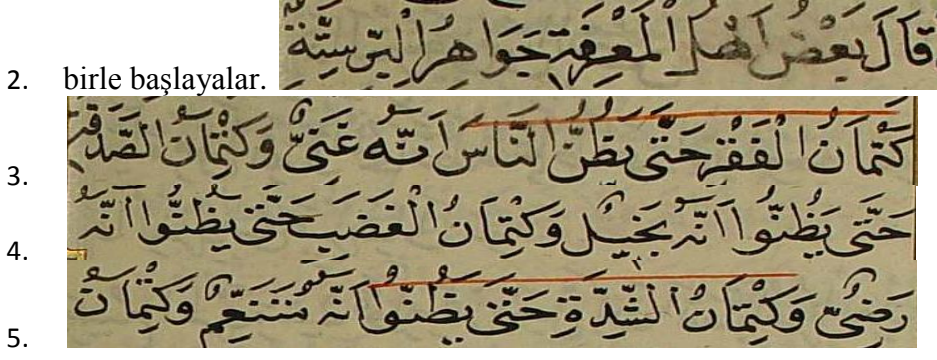 2. birle başlayalar. قَالَ بَعْضُ اَهْلِ الْمَعْرِفَةِ جَوَاهِرُ الْبِرِّ سِتَّةٌ
3. كَتْمَانُ الْفَقْرِ حَتَّى يَظُنَّ النَّاسَ اَنَّهُ غَنِىٌّ وَكِتْمَانُ الصَّدَقَةِ
4. حَتَّى يَظُنُّوا اَنَّهُ بَخِيْلٌ وَكِتْمَانُ الْغَضَبِ حَتَّى يَظُنُّوا اَنَّهُ
5. رَضِىٌّ وَكِتْمَانُ الشِّدَّةِ حَتَّى يَظُنُّوْا اَنَّهُ مُتَنَعِّمٌ وَكِتْمَانُ